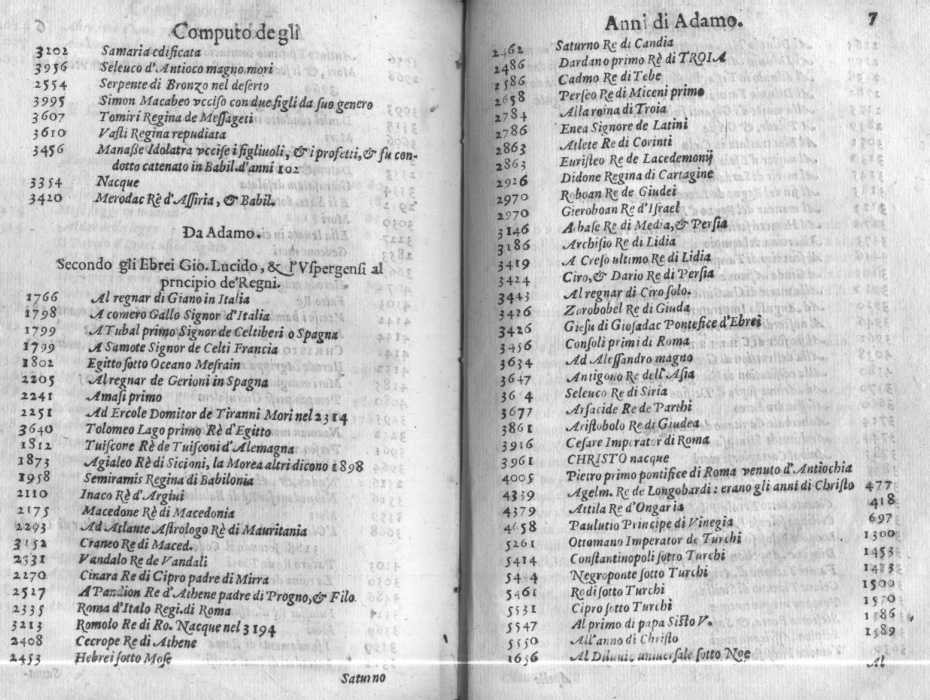 Computo degli
3202 Samaria edificata
3956 Seleuco d'Antioco magno mori
2554 Serpente di Bronzo nel deserto
3995 Simon Macabeo vcciso con due figli da suo genero
3607 Tomiri Regina de Messageti
3610 Vasti Regina repudiata
3456 Manaße Idolatra vccise i figliuoli, & i profetti, & fu con-
dotto catenato in Babil. d'anni 102
3354 Nacque
3420 Merodac Rè d'Assiria, & Babil.
Da Adamo.
Secondo gli Ebrei Gio. Lucido, & l'Vspergensi al
prncipio de'Regni.
1766 Al regnar di Giano in Italia
1798 A comero Gallo Signor d'Italia
1799 A Tubal primo Signor de Celtiberi o Spagna
1799 A Samote Signor de Celti Francia
1802 Egitto sotto Oceano Mesrain
2205 Al regnar de Gerioni in Spagna
2241 Amasi primo
2251 Ad Ercole Domitor de Tiranni Mori nel 2314
3640 Tolomeo Lago primo Rè d'Egitto
1812 Tuiscone Rè de Tuisconi d'Alemagna
1873 Agialeo Rè di Sicioni, la Morea altri dicono 1898
1958 Semiramis Regina di Babilonia
2110 Inaco Rè d'Argiui
2175 Macedone Rè di Macedonia
2293 Ad Atlante Astrologo Rè di Mauritania
3152 Craneo Re di Maced.
2331 Vandalo Re de Vandali
2270 Cinara Re di Cipro padre di Mirra
2517 A Pandion Re d'Athene padre di Progno, & Filo.
2335 Roma d'Italo Regi. di Roma
3213 Romolo Re di Ro. Nacque nel 3194
2408 Cecrope Re di Athene
2453 Hebrei sotto Mose
Saturno
Anni di Adamo. 7
2462 Saturno Re di Candia
2486 Dardano primo Rè di TROIA
2586 Cadmo Re di Tebe
2658 Perseo Re di Miceni primo
2784 Alla roina di Troia
2786 Enea Signore de Latini
2863 Atlete Re di Corinti
2863 Euristeo Re de Lacedemonij
2926 Didone Regina di Cartagine
2970 Roboan Re de Giudei
2970 Gieroboan Rè d'Israel
3146 Arbase Re di Media, & Persia
3186 Archisio Re di Lidia
3419 A Creso ultimo Re di Lidia
3424 Ciro, & Dario Re di Persia
3443 Al regnar di Ciro solo.
3426 Zorobobel Re di Giuda
3426 Giesu di Giosadac Pontefice d'Ebrei
3456 Consoli primi di Roma
3634 Ad Alessandro magno
3647 Antigono Re dell'Asia
36 4 Seleuco Re di Siria
3677 Arsacide Re de Parthi
3861 Aristobolo Re di Giudea
3916 Cesare Imperator di Roma
3961 CHRISTO nacque
4005 Pietro primo pontifice di Roma venuto d'Antiochia
4339 Agelm. Re de Longobardi: erano gli anni di Christo 477
4379 Attila Re d'Ongaria 418
4658 Paulutio Principe di Vinegia 697
5261 Ottomano Imperator de Turchi 1300
5414 Constantinopoli sotto Turchi 1453
54 4 Negroponte sotto Turchi 1473
5461 Rodi sotto Turchi 1500
5531 Cipro sotto Turchi 1570
5547 Al primo di papa Sisto V. 1586
5550 All'anno di Christo 1589
1656 Al Diluuio uniuersale sotto Noe
Al